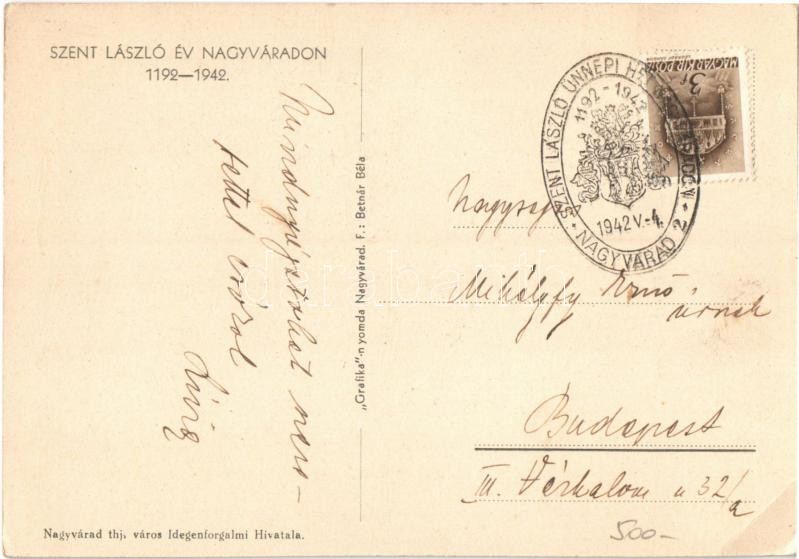 SZENT LÁSZLÓ ÉV NAGYVÁRADON
1192—1942.
Mindnyájatokat
tettel csókol
„Grafika"-nyomda Nagyvárad. F.: Betnár Béla
Nagyvárad thj. város Idegenforgalmi Hivatala.
MAGYAR KIR. POSTA
3f
SZENT LÁSZLÓ ÜNNEPI
1192-1942
1942 V.-4.
NAGYVÁRAD 2
Mihályfy Ernő
úrnak
Budapest
III. Vérhalom u 32/a
500-
darabanth